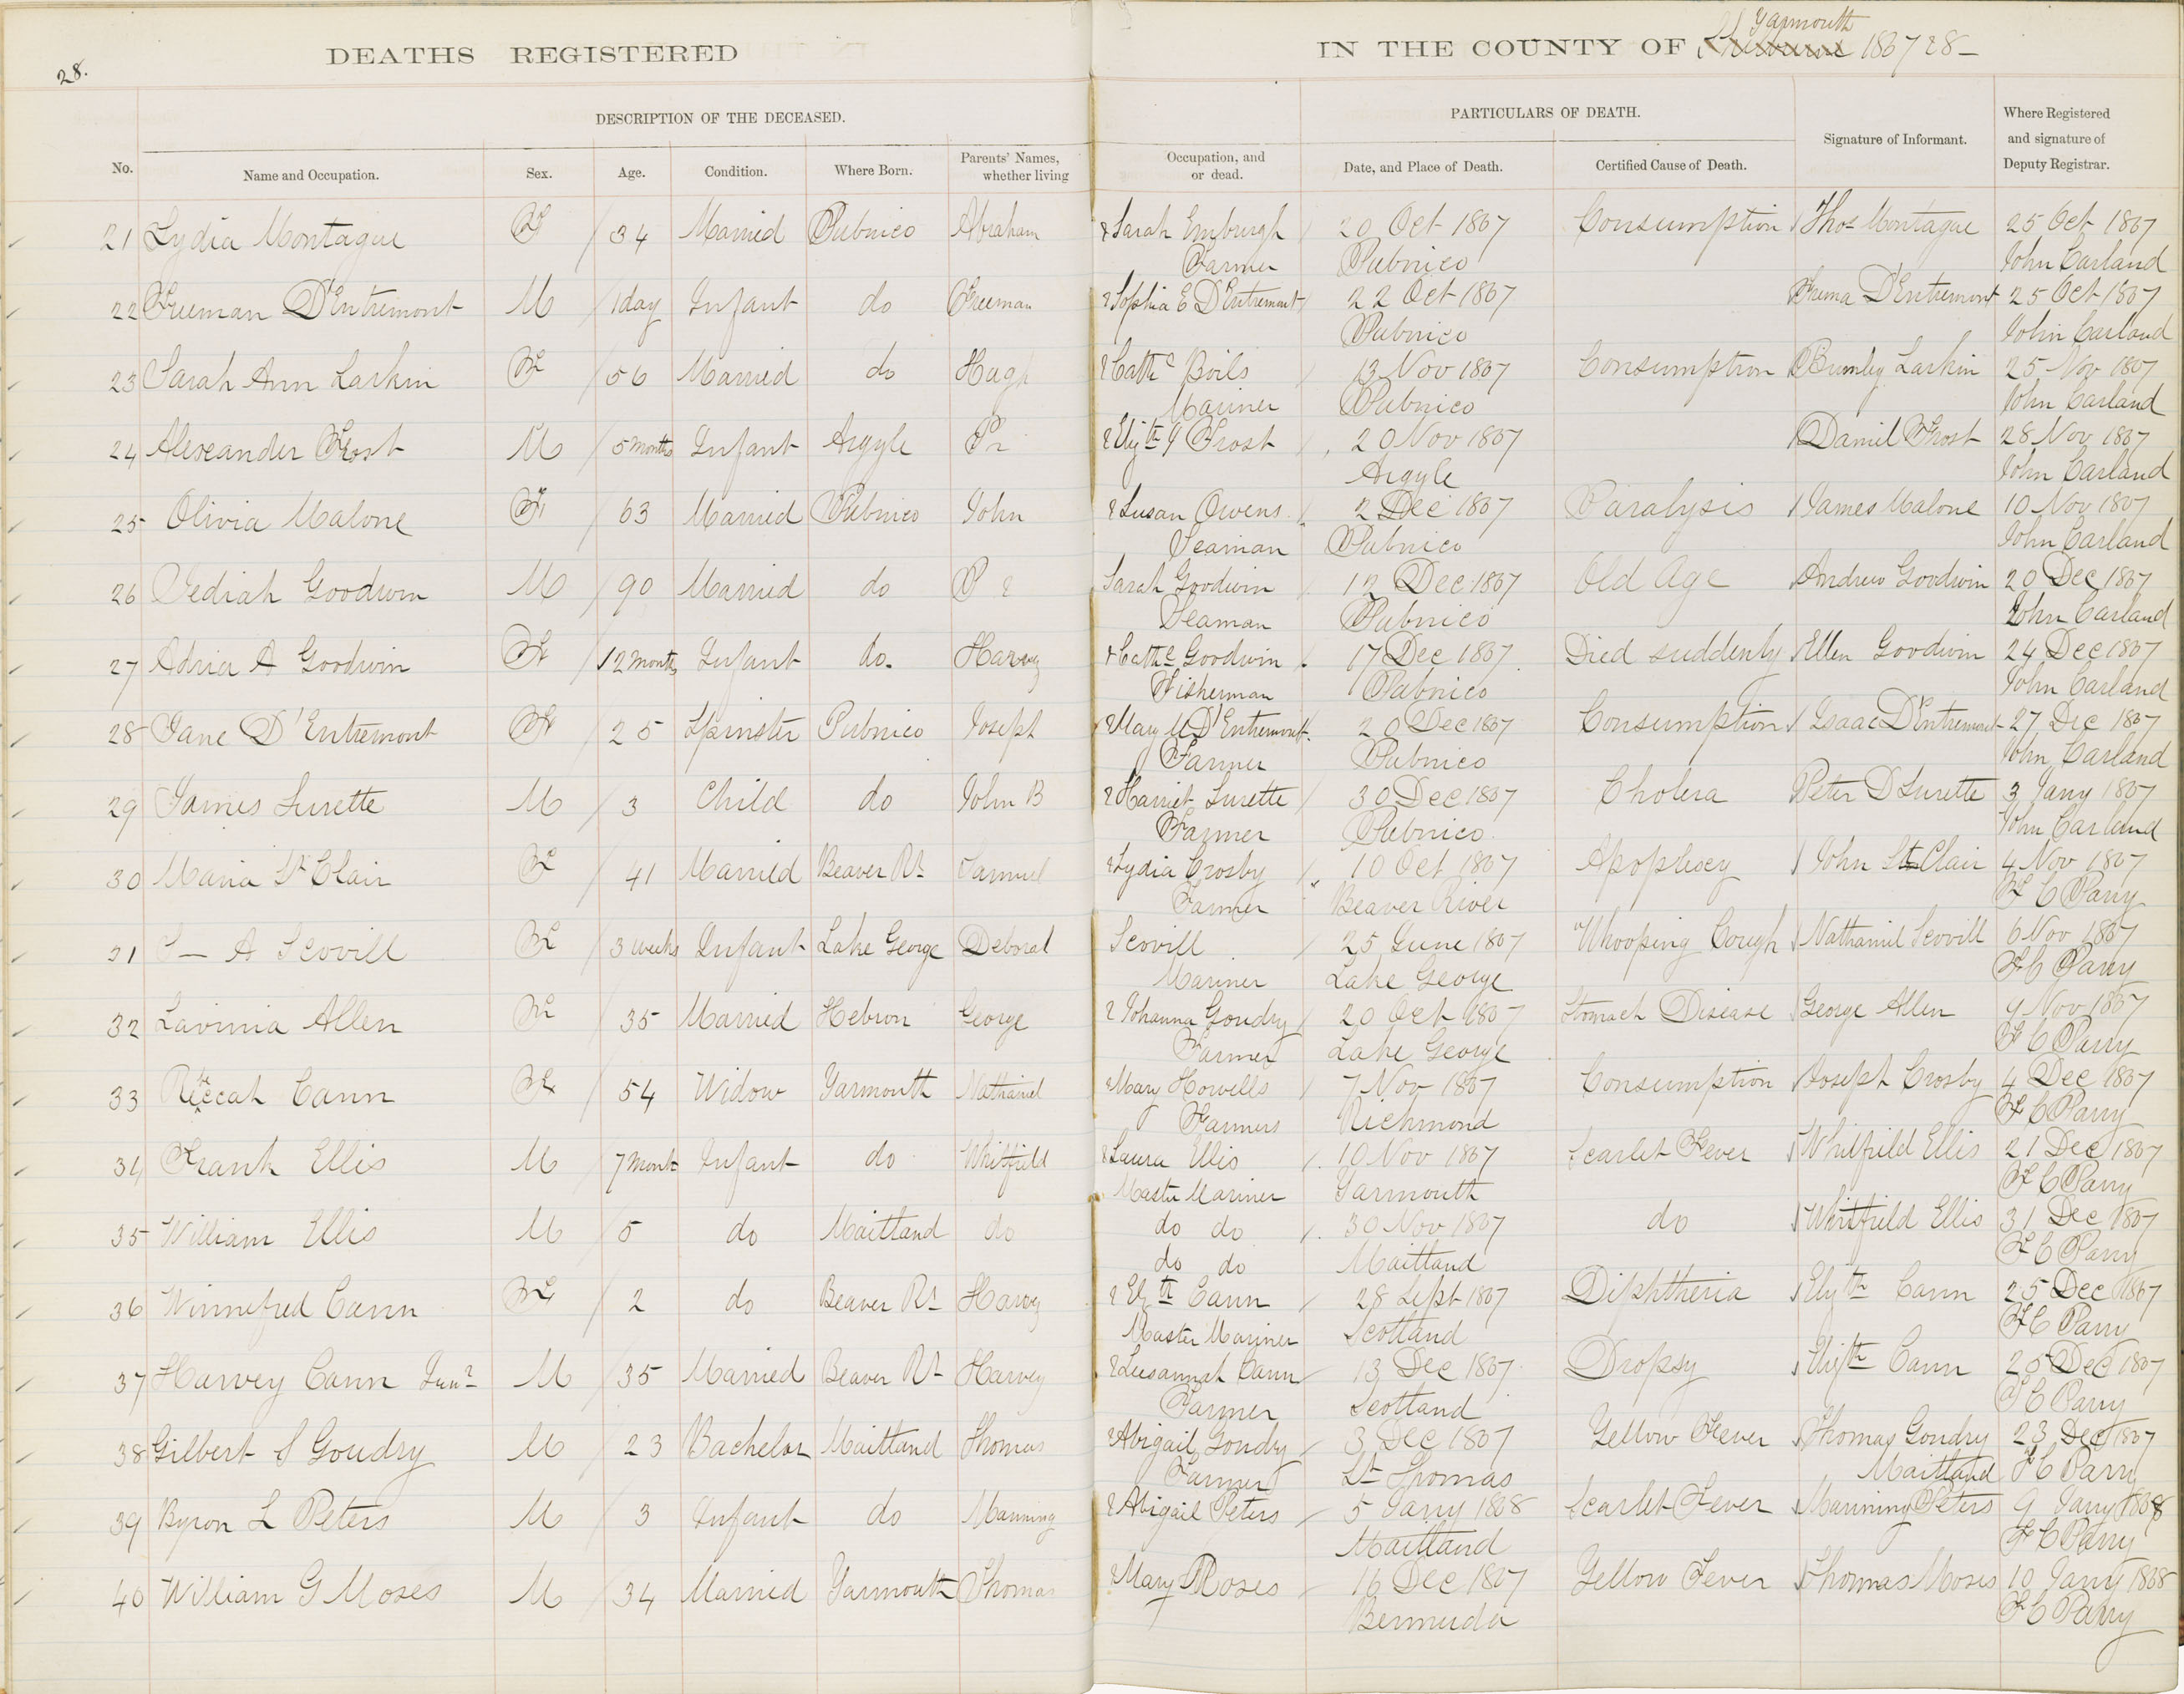 28.
DEATHS REGISTERED IN THE COUNTY OF Yarmouth 1867 28
DESCRIPTION OF THE DECEASED. PARTICULARS OF DEATH.
No. Name and Occupation. Sex. Age. Condition. Where Born. Parents' Names, whether living Occupation, and or dead. Date, and Place of Death. Certified Cause of Death. Signature of Informant. Where Registered and signature of Deputy Registrar.
21 Lydia Montague F 34 Married Pubnico Abraham & Sarah Emburgh 20 Oct 1867 Consumption Thos Montague 25 Oct 1867
Farmer Pubnico John Carland
22 Freeman D'Entremont M 1 day Infant do Freeman & Sophia E D'Entremont 22 Oct 1867 D'Entremont 25 Oct 1867
Pubnico John Carland
23 Sarah Ann Larkin F 56 Married do Hugh & Cathe Boils 13 Nov 1867 Consumption Larkin 25 Nov 1867
Mariner Pubnico John Carland
24 Alexander Frost M 5 months Infant Argyle & Elizth Frost 20 Nov 1867 Daniel Frost 28 Nov 1867
Argyle John Carland
25 Olivia Malone F 63 Married Pubnico John & Susan Owens 2 Dec 1867 Paralysis James Malone 10 Nov 1867
Seaman Pubnico John Carland
26 Jediah Goodwin M 90 Married do P & Sarah Goodwin 12 Dec 1867 Old Age Andrew Goodwin 20 Dec 1867
Seaman Pubnico John Carland
27 Adria A Goodwin F 12 months Infant do. Harvey & Cathe Goodwin 17 Dec 1867 Died suddenly Ellen Goodwin 24 Dec 1867
Fisherman Pubnico John Carland
28 Jane D'Entremont F 25 Spinster Pubnico Joseph & Mary M D'Entremont 20 Dec 1867 Consumption Isaac D'Entremont 27 Dec 1867
Farmer Pubnico John Carland
29 James Surette M 3 Child do John B & Harriet Surette 30 Dec 1867 Cholera Peter D Surette 3 Jany 1867
Farmer Pubnico John Carland
30 Maria St Clair F 41 Married Beaver Rr Samuel & Lydia Crosby 10 Oct 1867 Apoplexy John St Clair 4 Nov 1867
Farmer Beaver River F C Parry
31 S — A Scovill F 3 weeks Infant Lake George Deborah Scovill 25 June 1867 Whooping Cough Nathaniel Scovill 6 Nov 1867
Mariner Lake George F C Parry
32 Lavinia Allen F 35 Married Hebron George & Johanna Goudry 20 Oct 1867 Stomach Disease George Allen 9 Nov 1867
Farmer Lake George F C Parry
33 Cann F 54 Widow Yarmouth Nathaniel & Mary Howells 7 Nov 1867 Consumption Joseph Crosby 4 Dec 1867
Farmers Richmond F C Parry
34 Frank Ellis M 7 Month Infant do Whitfield & Laura Ellis 10 Nov 1867 Scarlet Fever Whitfield Ellis 21 Dec 1867
Master Mariner Yarmouth F C Parry
35 William Ellis M 5 do Maitland do do do 30 Nov 1867 do Whitfield Ellis 31 Dec 1867
do do Maitland F C Parry
36 Winnefred Cann F 2 do Beaver Rr Harvey & Elzth Cann 28 Sept 1867 Diphtheria Elizth Cann 25 Dec 1867
Master Mariner Scotland F C Parry
37 Harvey Cann Junr M 35 Married Beaver Rr Harvey & Lusannah Cann 13 Dec 1867 Dropsy Elizth Cann 25 Dec 1867
Farmer Scotland F C Parry
38 Gilbert S Goudry M 23 Bachelor Maitland Thomas & Abigail Goudry 3 Dec 1867 Yellow Fever Thomas Goudry 23 Dec 1867
Farmer St Thomas Maitland F C Parry
39 Byron L Peters M 3 Infant do Manning & Abigail Peters 5 Jany 1868 Scarlet Fever Manning Peters 9 Jany 1868
Maitland F C Parry
40 William G Moses M 34 Married Yarmouth Thomas & Mary Moses 16 Dec 1867 Yellow Fever Thomas Moses 10 Jany 1868
Bermuda F C Parry